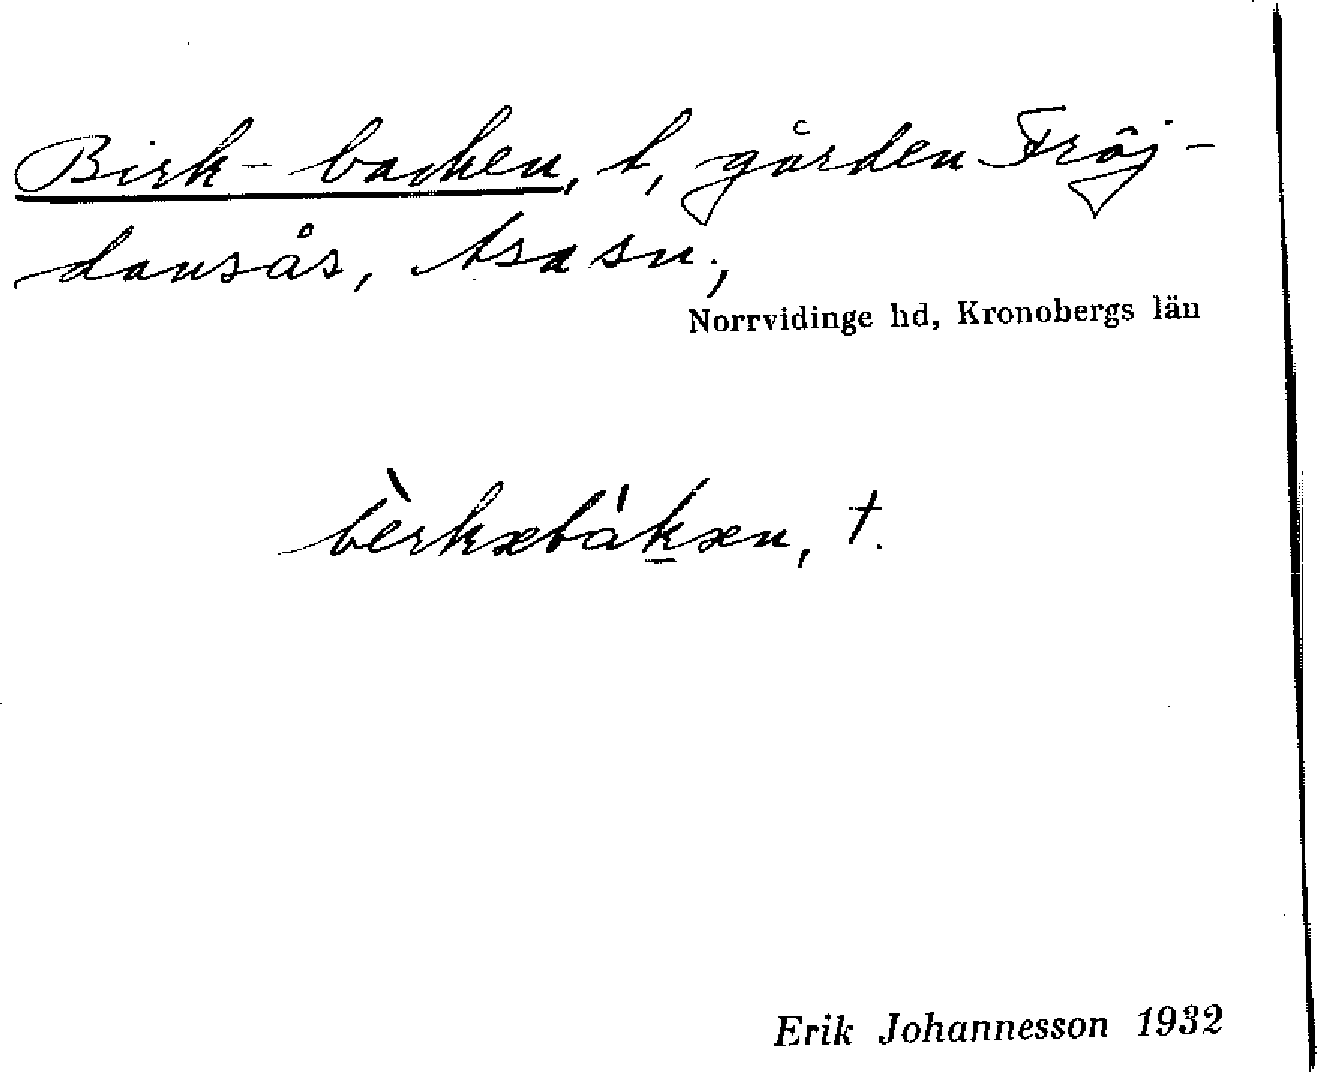 Birk-backen, t, gården Fröj-
dansås, Asa sn.,
Norrvidinge hd, Kronobergs län
bèrkæbákæn, †.
Erik Johannesson 1932